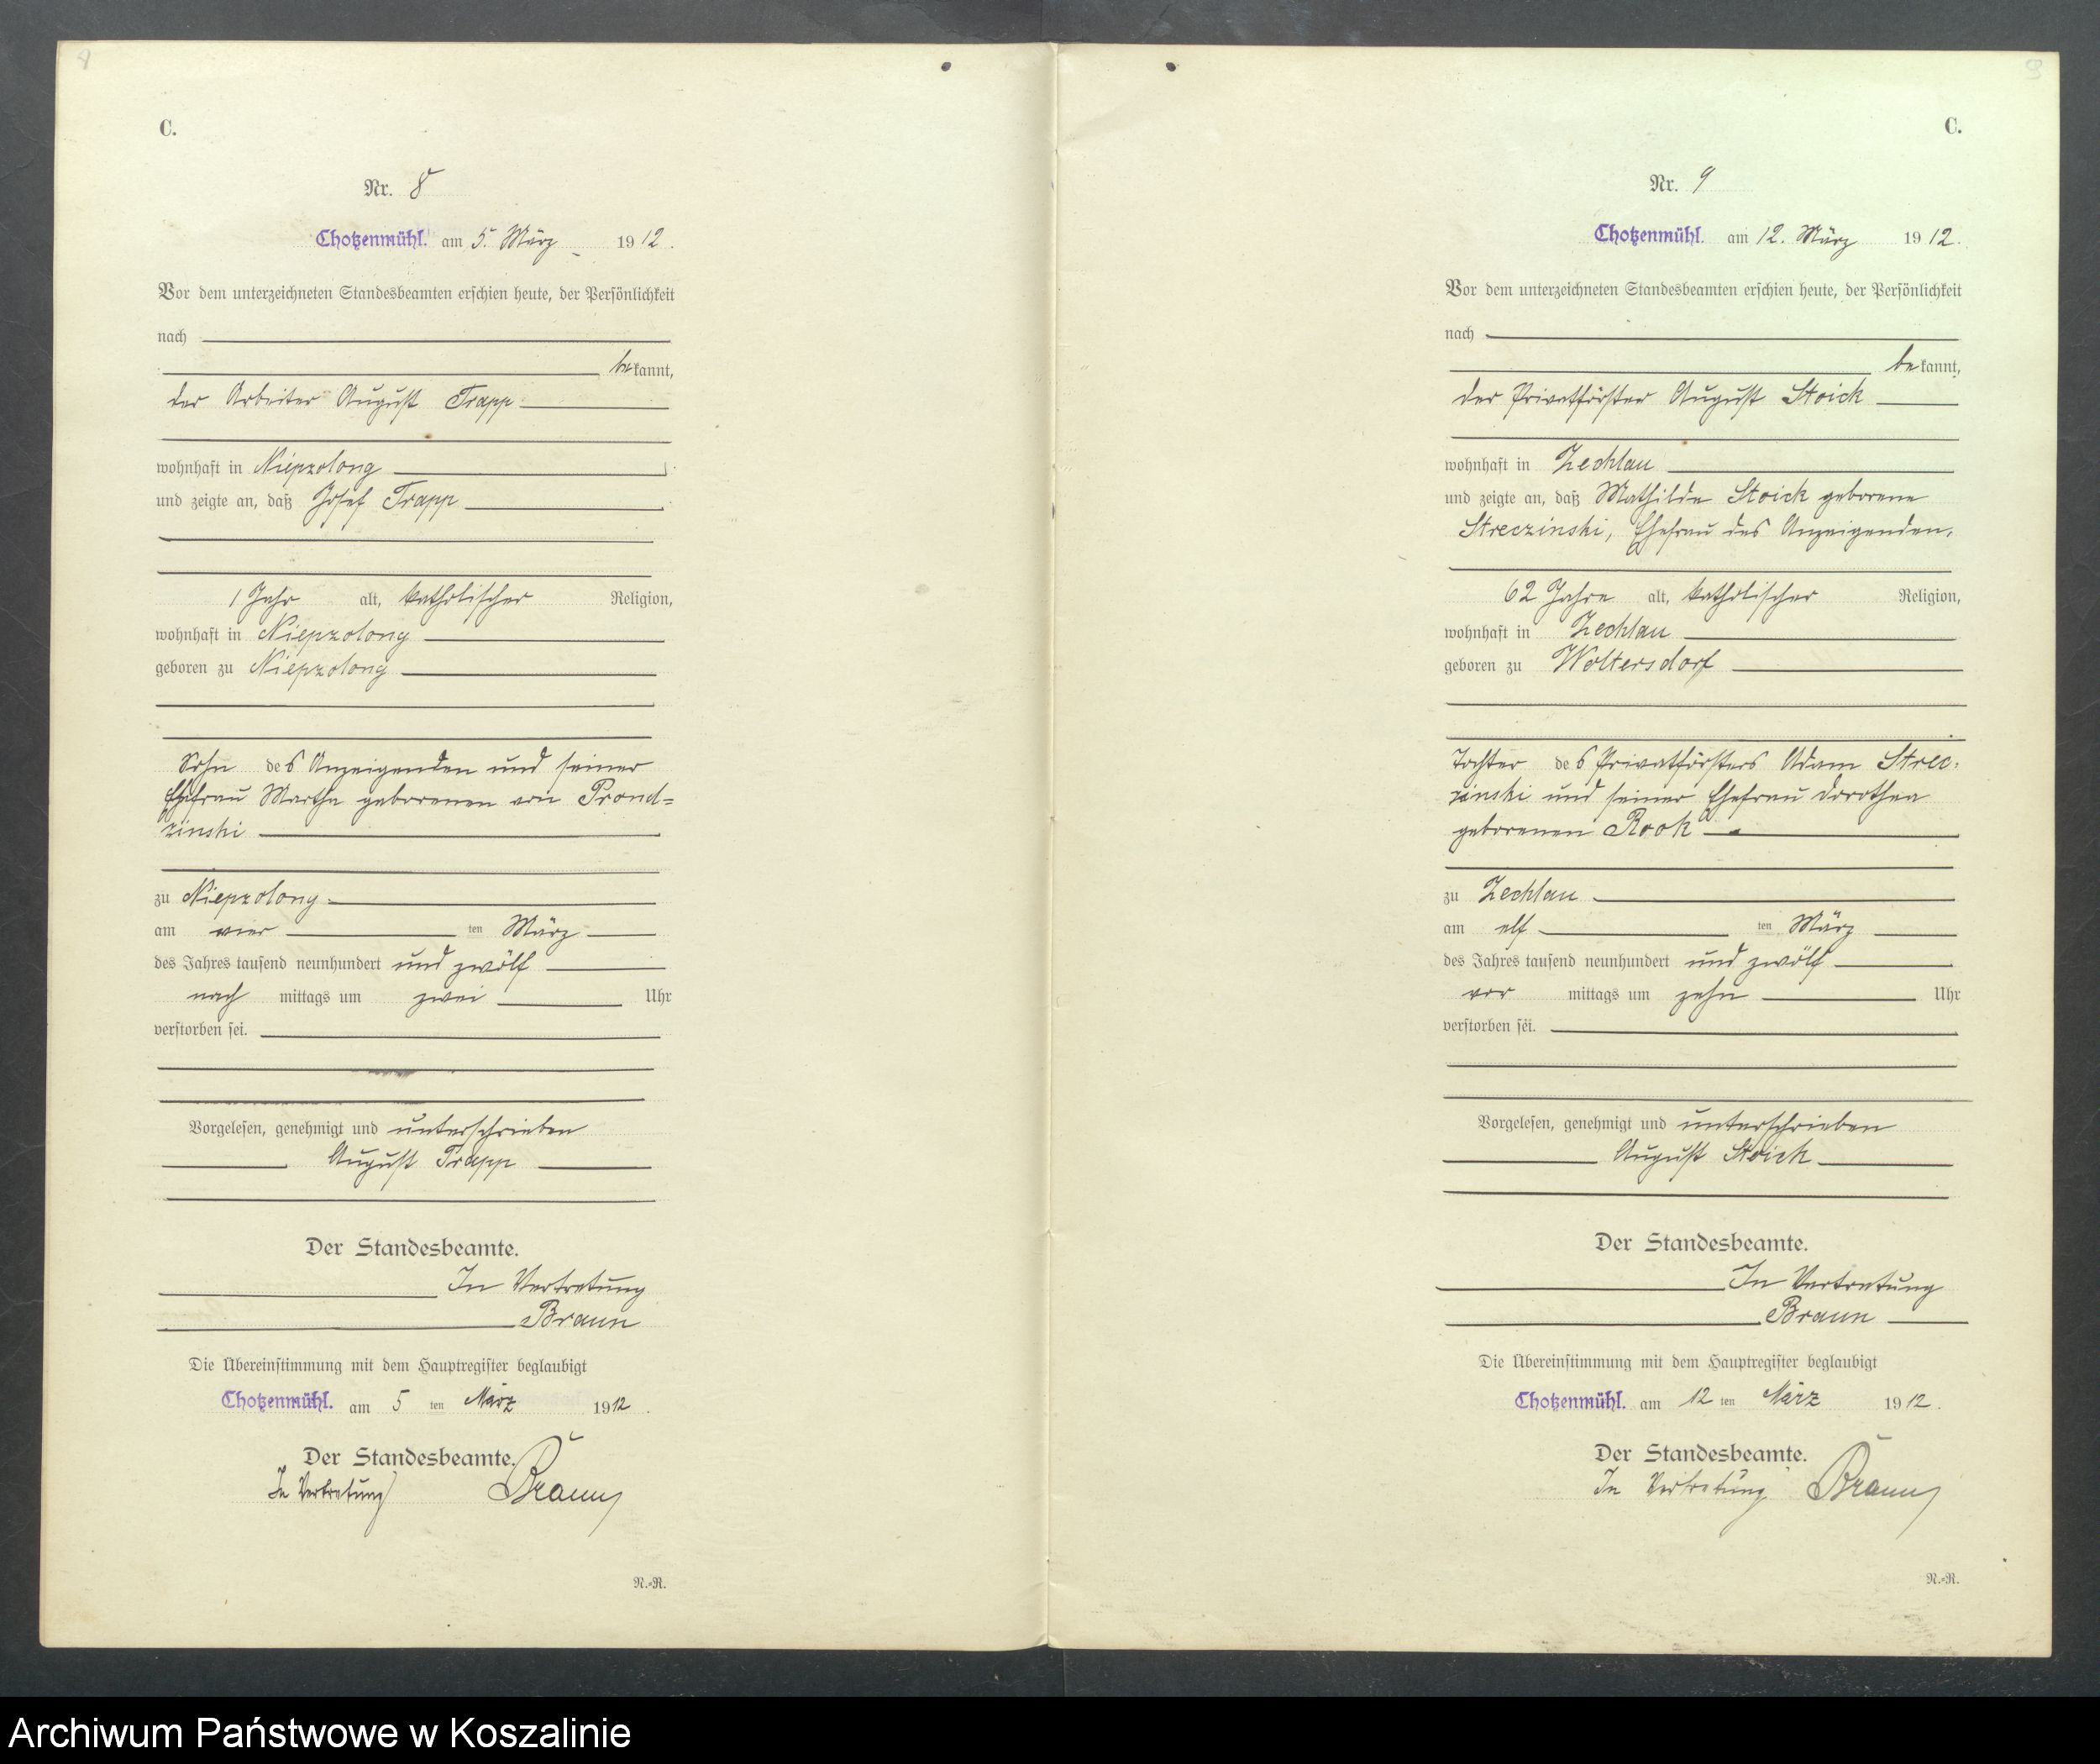 8
C.
Nr. 8
Chotzenmühl. am 5. März 1912.
Vor dem unterzeichneten Standesbeamten erschien heute, der Persönlichkeit
nach
bekannt,
der Arbeiter August Trapp
wohnhaft in Niepzolong
und zeigte an, daß Josef Trapp
1 Jahr alt, katholischer Religion,
wohnhaft in Niepzolong
geboren zu Niepzolong
Sohn des Anzeigenden und seiner
Ehefrau Martha geborenen von Prond=
zinski
zu Niepzolong
am vier ten März
des Jahres tausend neunhundert und zwölf
nach mittags um zwei Uhr
verstorben sei.
Vorgelesen, genehmigt und unterschrieben
August Trapp
Der Standesbeamte.
In Vertretung
Braun
Die Übereinstimmung mit dem Hauptregister beglaubigt
Chotzenmühl. am 5 ten März 1912.
Der Standesbeamte.
In Vertretung Braun
N.=R.
9
C.
Nr. 9
Chotzenmühl. am 12. März 1912.
Vor dem unterzeichneten Standesbeamten erschien heute, der Persönlichkeit
nach
bekannt,
der Privatförster August Stoick
wohnhaft in Zechlau
und zeigte an, daß Mathilde Stoick geborene
Streczinski, Ehefrau des Anzeigenden,
62 Jahre alt, katholischer Religion,
wohnhaft in Zechlau
geboren zu Woltersdorf
Tochter des Privatförsters Adam Strec=
zinski und seiner Ehefrau Dorothea
geborenen Rook
zu Zechlau
am elf ten März
des Jahres tausend neunhundert und zwölf
vor mittags um zehn Uhr
verstorben sei.
Vorgelesen, genehmigt und unterschrieben
August Stoick
Der Standesbeamte.
In Vertretung
Braun
Die Übereinstimmung mit dem Hauptregister beglaubigt
Chotzenmühl. am 12 ten März 1912.
Der Standesbeamte.
In Vertretung Braun
N.=R.
Archiwum Państwowe w Koszalinie